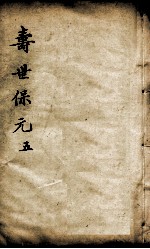 壽世保元五